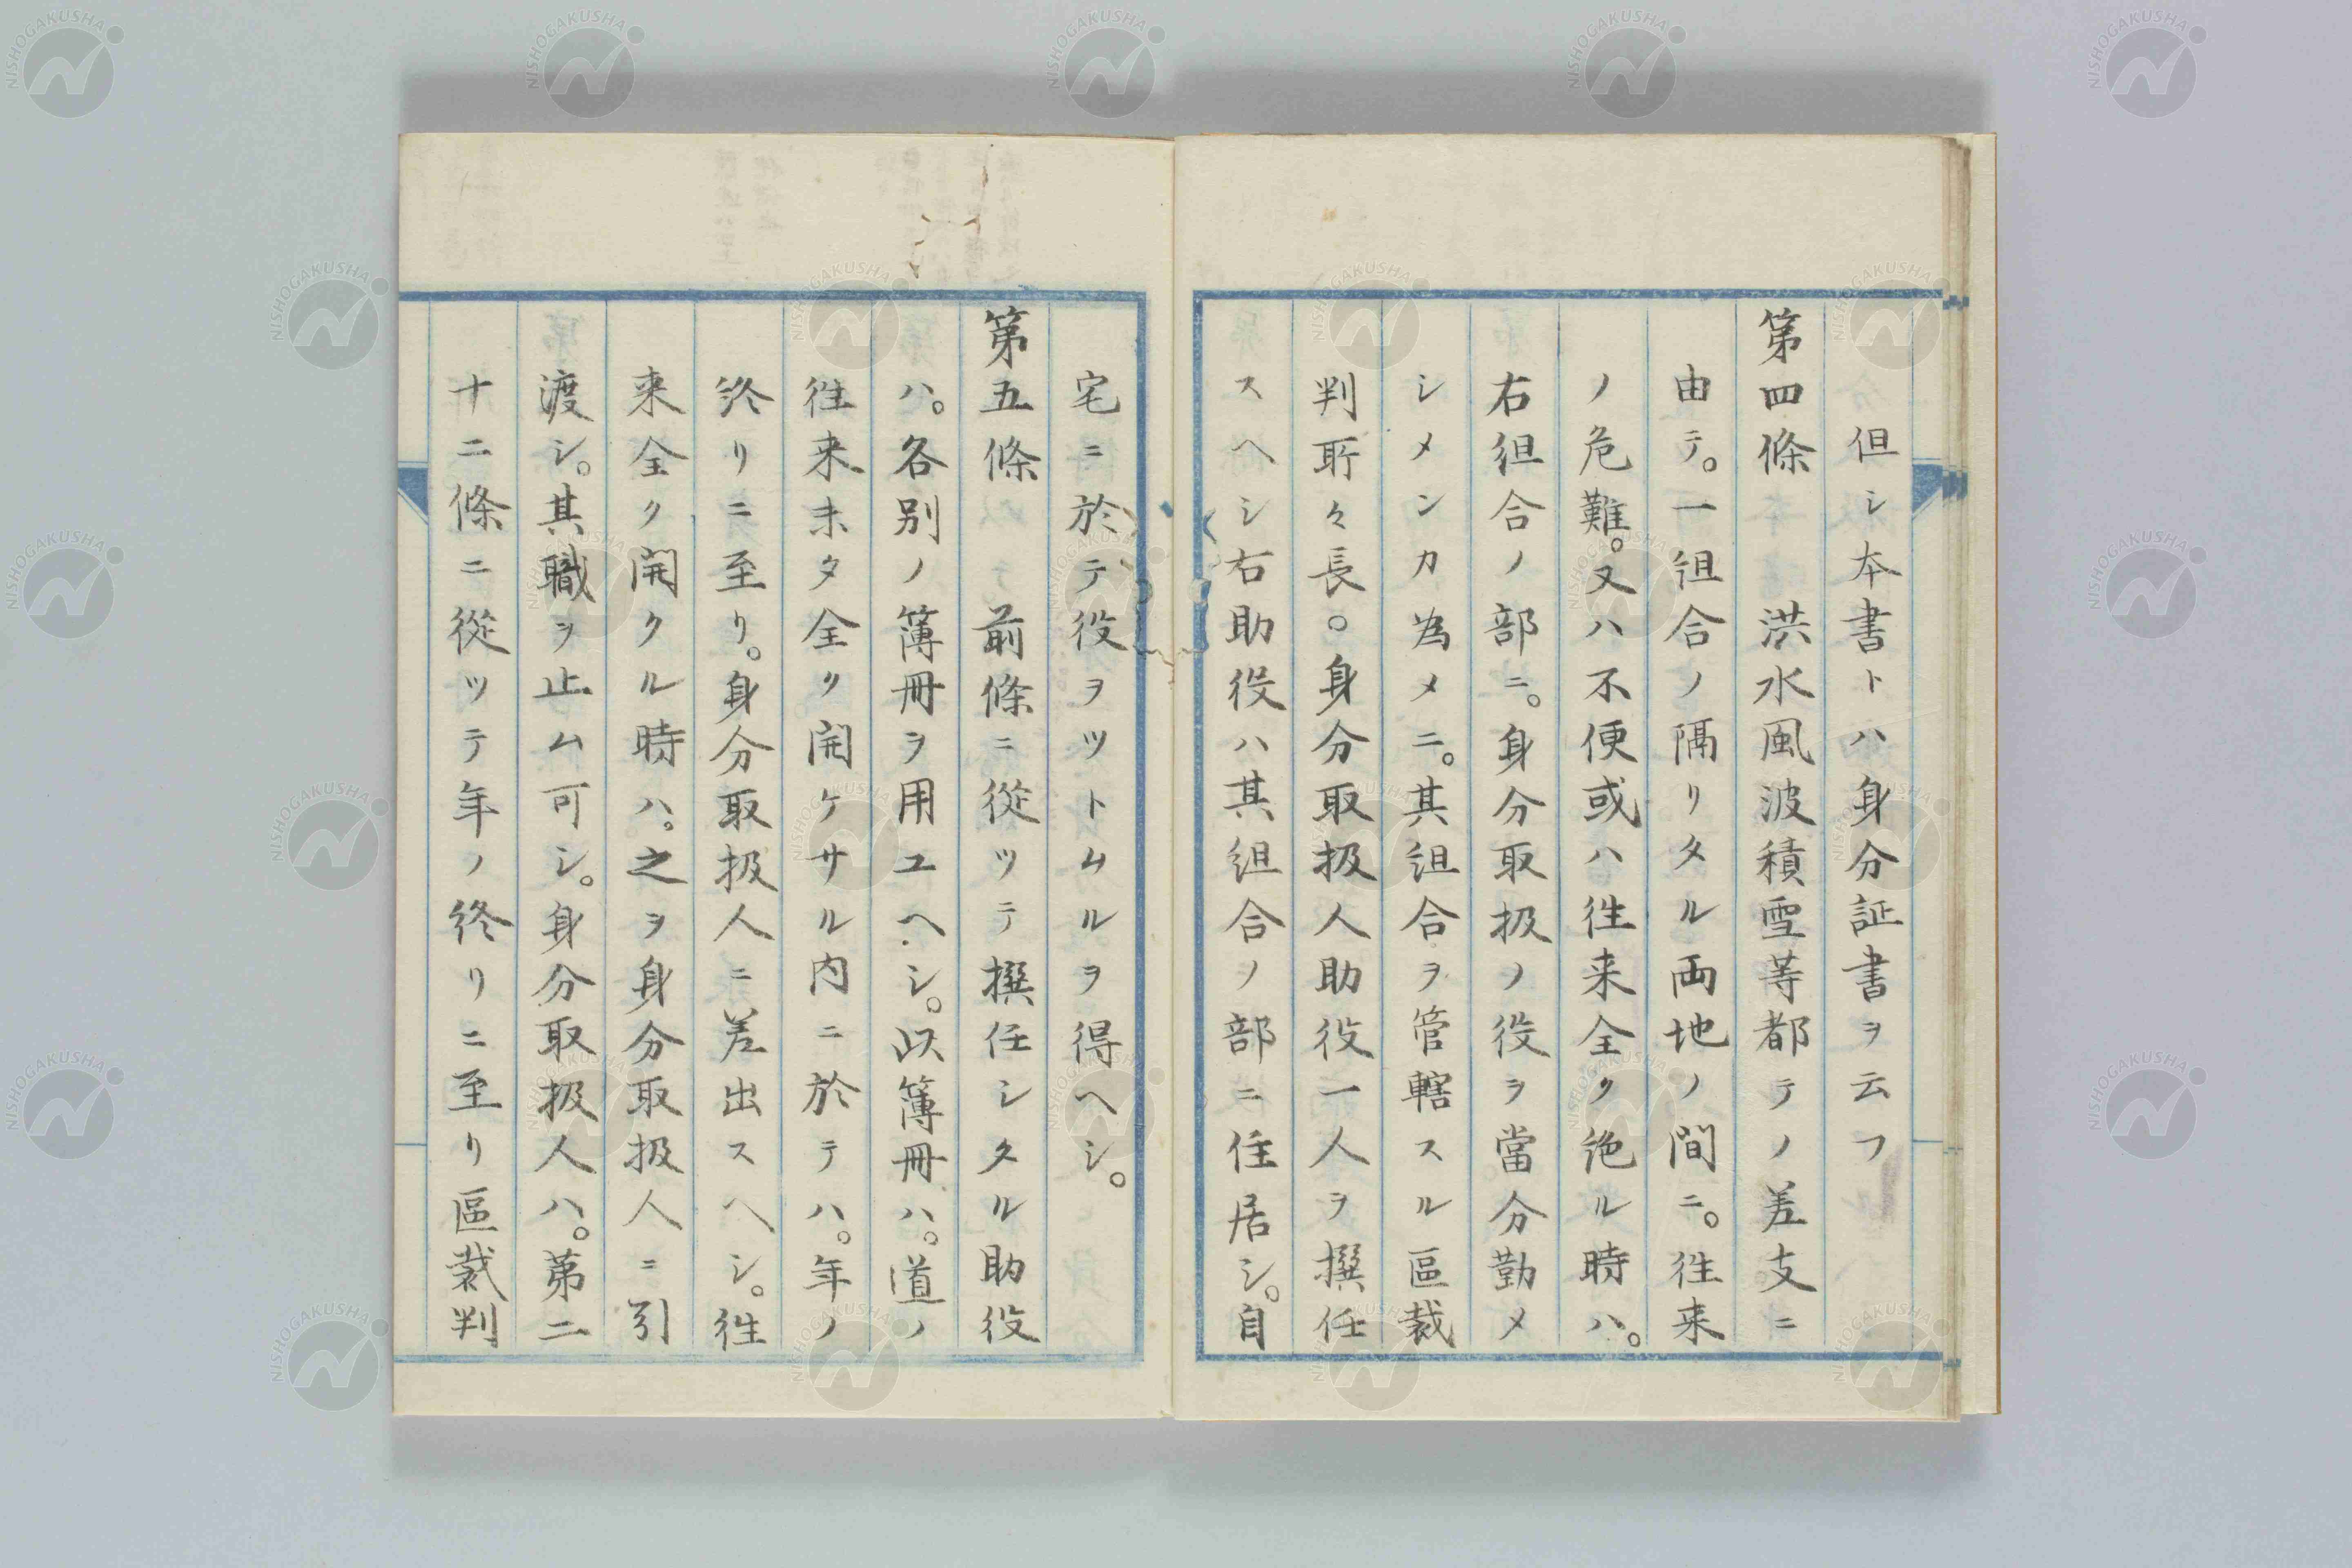 但シ本書トハ身分証書ヲ云フ
第四條　洪水風波積雪等都テノ差支ニ
由テ。一組合ノ隔リタル両地ノ間ニ。往来
ノ危難。又ハ不便或ハ往来全ク絶ル時ハ。
右組合ノ部ニ。身分取扱ノ役ヲ當分勤メ
シメンカ為メニ。其組合ヲ管轄スル區裁
判所々長。身分取扱人助役一人ヲ撰任
スヘシ右助役ハ其組合ノ部ニ住居シ。自
宅ニ於テ役ヲツトムルヲ得ヘシ。
第五條　前條ニ從ツテ撰任シタル助役
ハ。各別ノ簿冊ヲ用ユヘシ。此簿冊ハ。道ノ
往来未タ全ク開ケサル内ニ於テハ。年ノ
終リニ至リ。身分取扱人ニ差出スヘシ。往
来全ク開クル時ハ。之ヲ身分取扱人ニ引
渡シ。其職ヲ止ム可シ。身分取扱人ハ。第二
十二條ニ從ツテ年ノ終リニ至リ區裁判
NISHOGAKUSHA